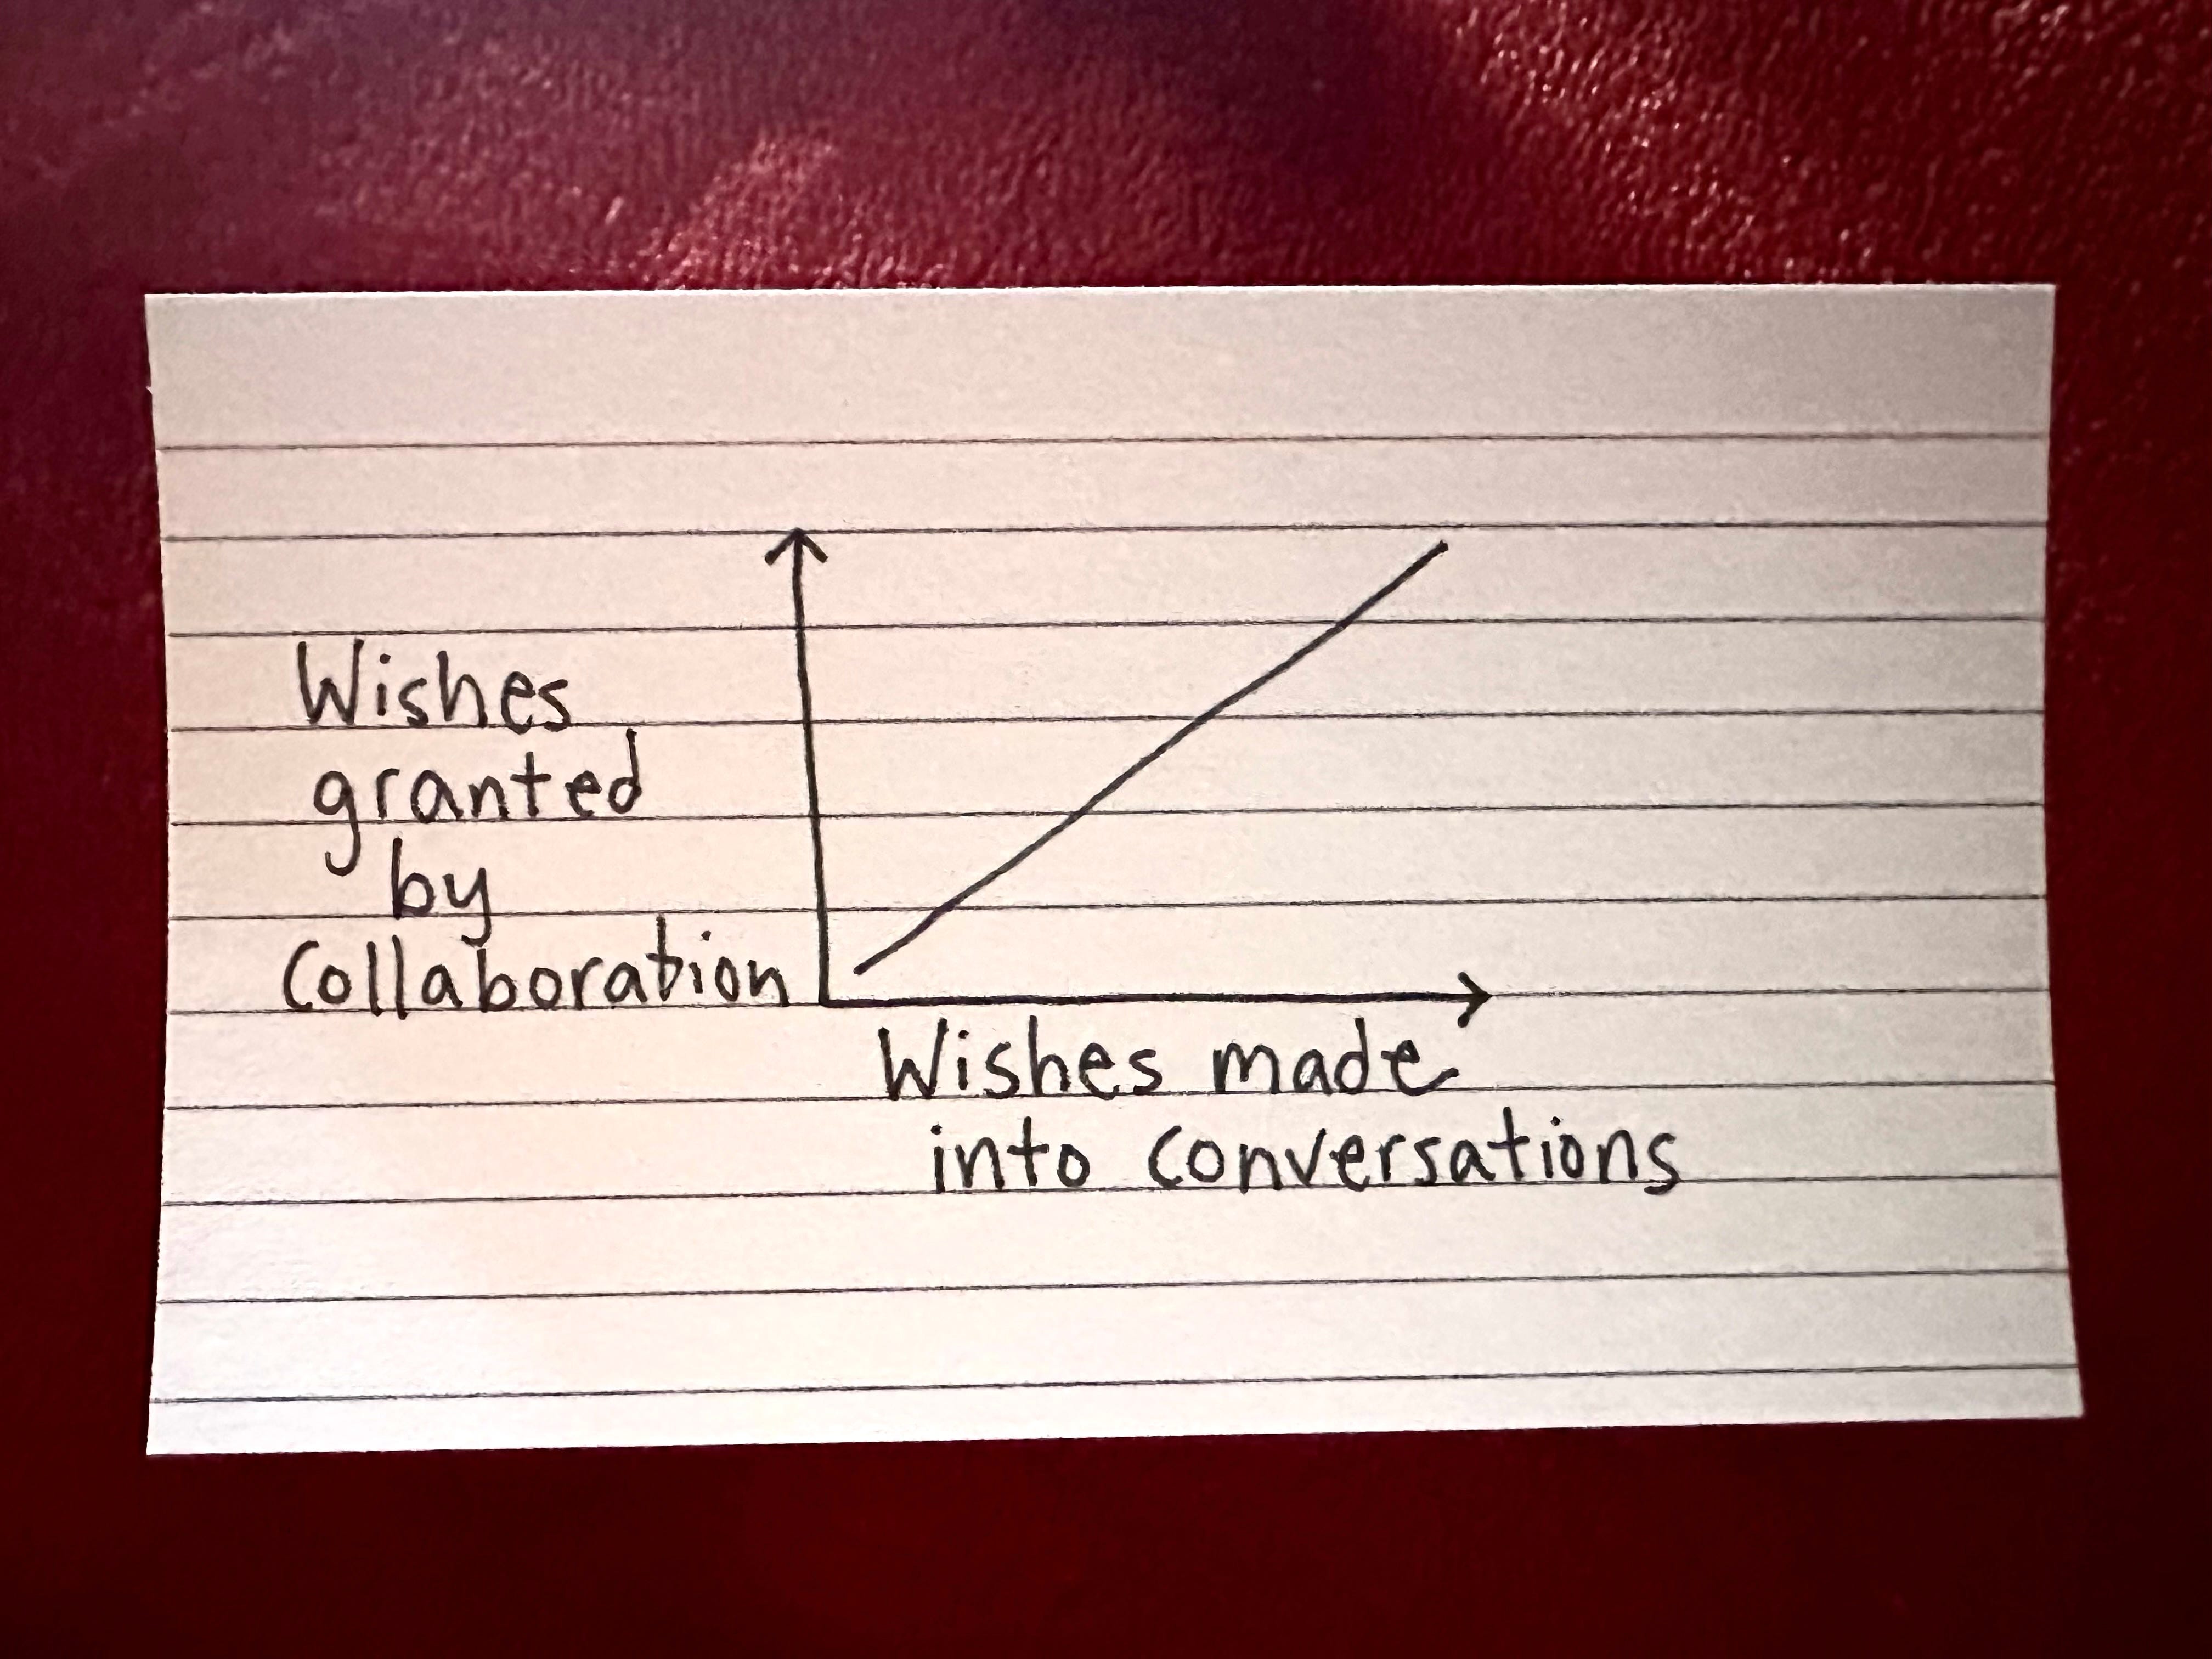 Wishes
granted
by
Collaboration
Wishes made
into conversations